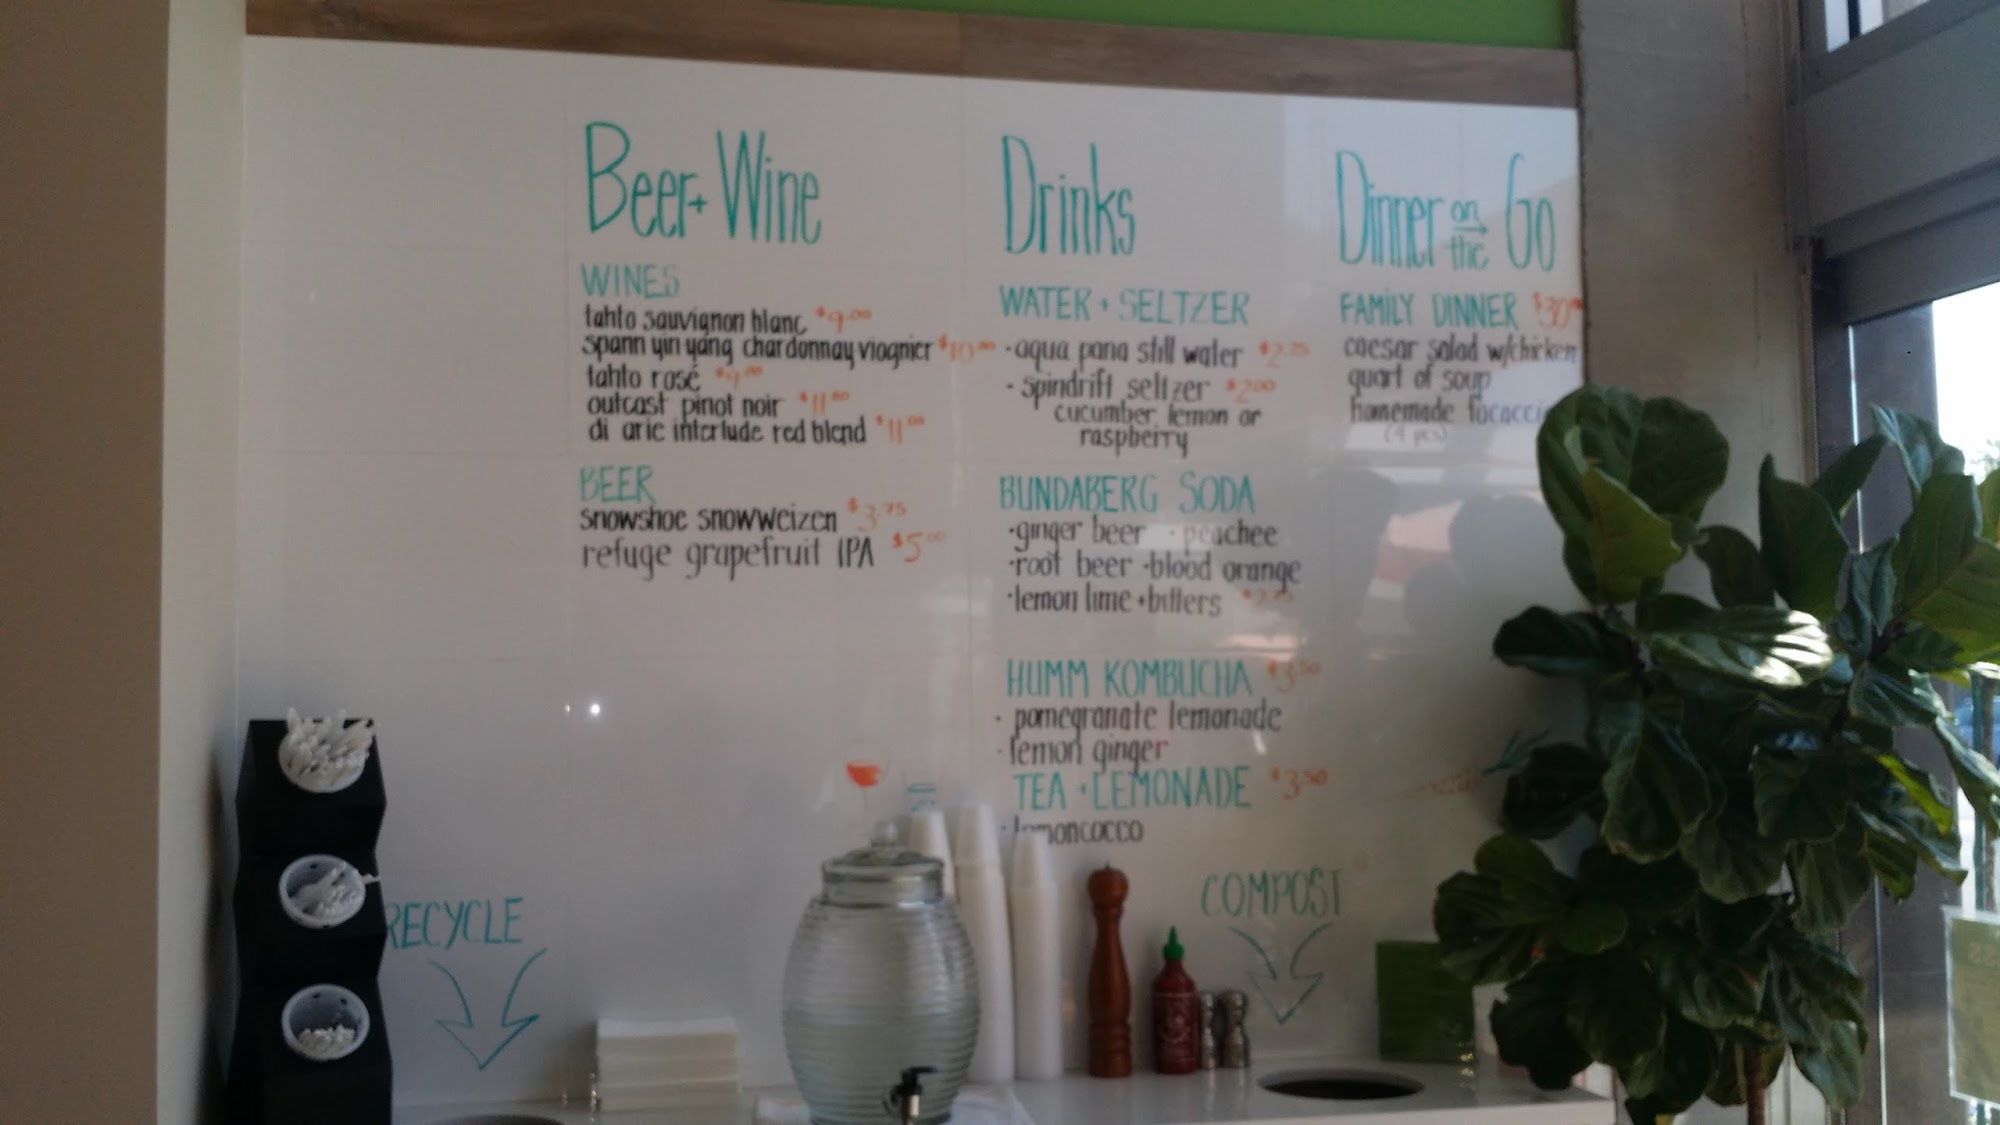 Beer + Wine
WINES
tahto sauvignon blanc $9.00
spann yin yang chardonnay viognier $10.00
tahto rosé $9.00
outcast pinot noir $11.00
di arie interlude red blend $11.00
BEER
snowshoe snowweizen $3.75
refuge grapefruit IPA $5.00
Drinks
WATER + SELTZER
· aqua pana still water $2.25
· spindrift seltzer $2.00
cucumber, lemon or
raspberry
BUNDABERG SODA
· ginger beer · peachee
· root beer · blood orange
· lemon lime + bitters
HUMM KOMBUCHA $3.50
· pomegranate lemonade
· lemon ginger
TEA + LEMONADE $3.50
· lemoncocco
Dinner on the Go
FAMILY DINNER $30
caesar salad w/chicken
quart of soup
homemade focaccia
(4 pcs)
RECYCLE
COMPOST